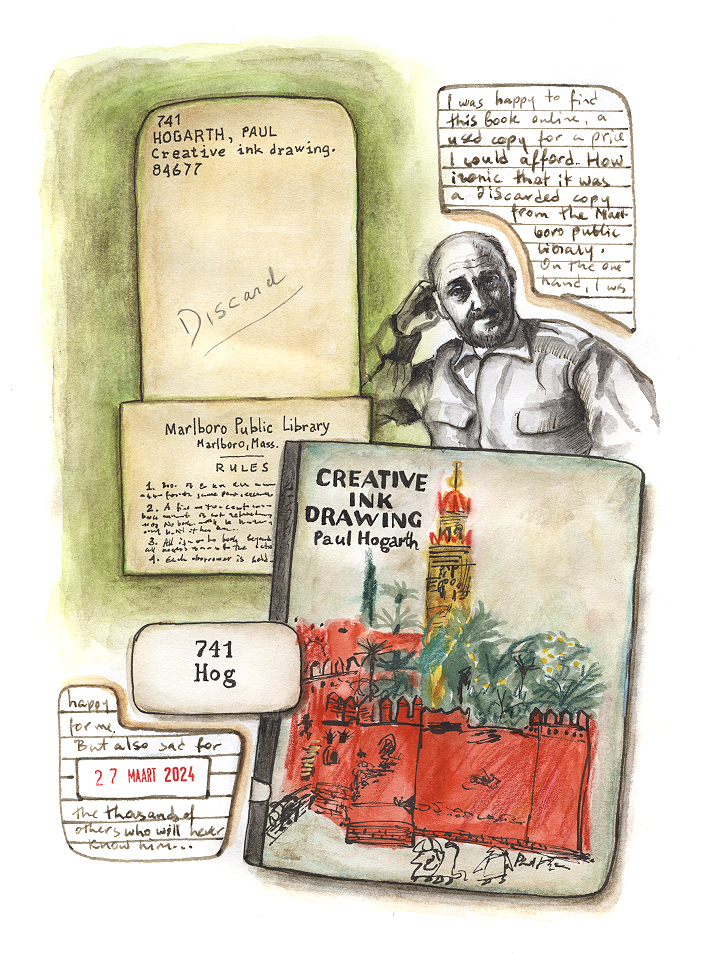 741
HOGARTH, PAUL
Creative ink drawing.
84677
Discard
Marlboro Public Library
Marlboro, Mass.
RULES
1.
2. A fine
3. All
4. Each borrower is held
I was happy to find
this book online, a
used copy for a price
I could afford. How
ironic that it was
a discarded copy
from the Marl-
boro public
library.
On the one
hand, I was
CREATIVE
INK
DRAWING
Paul Hogarth
741
Hog
happy
for me.
But also sad for
27 MAART 2024
the thousands of
others who will never
know him...